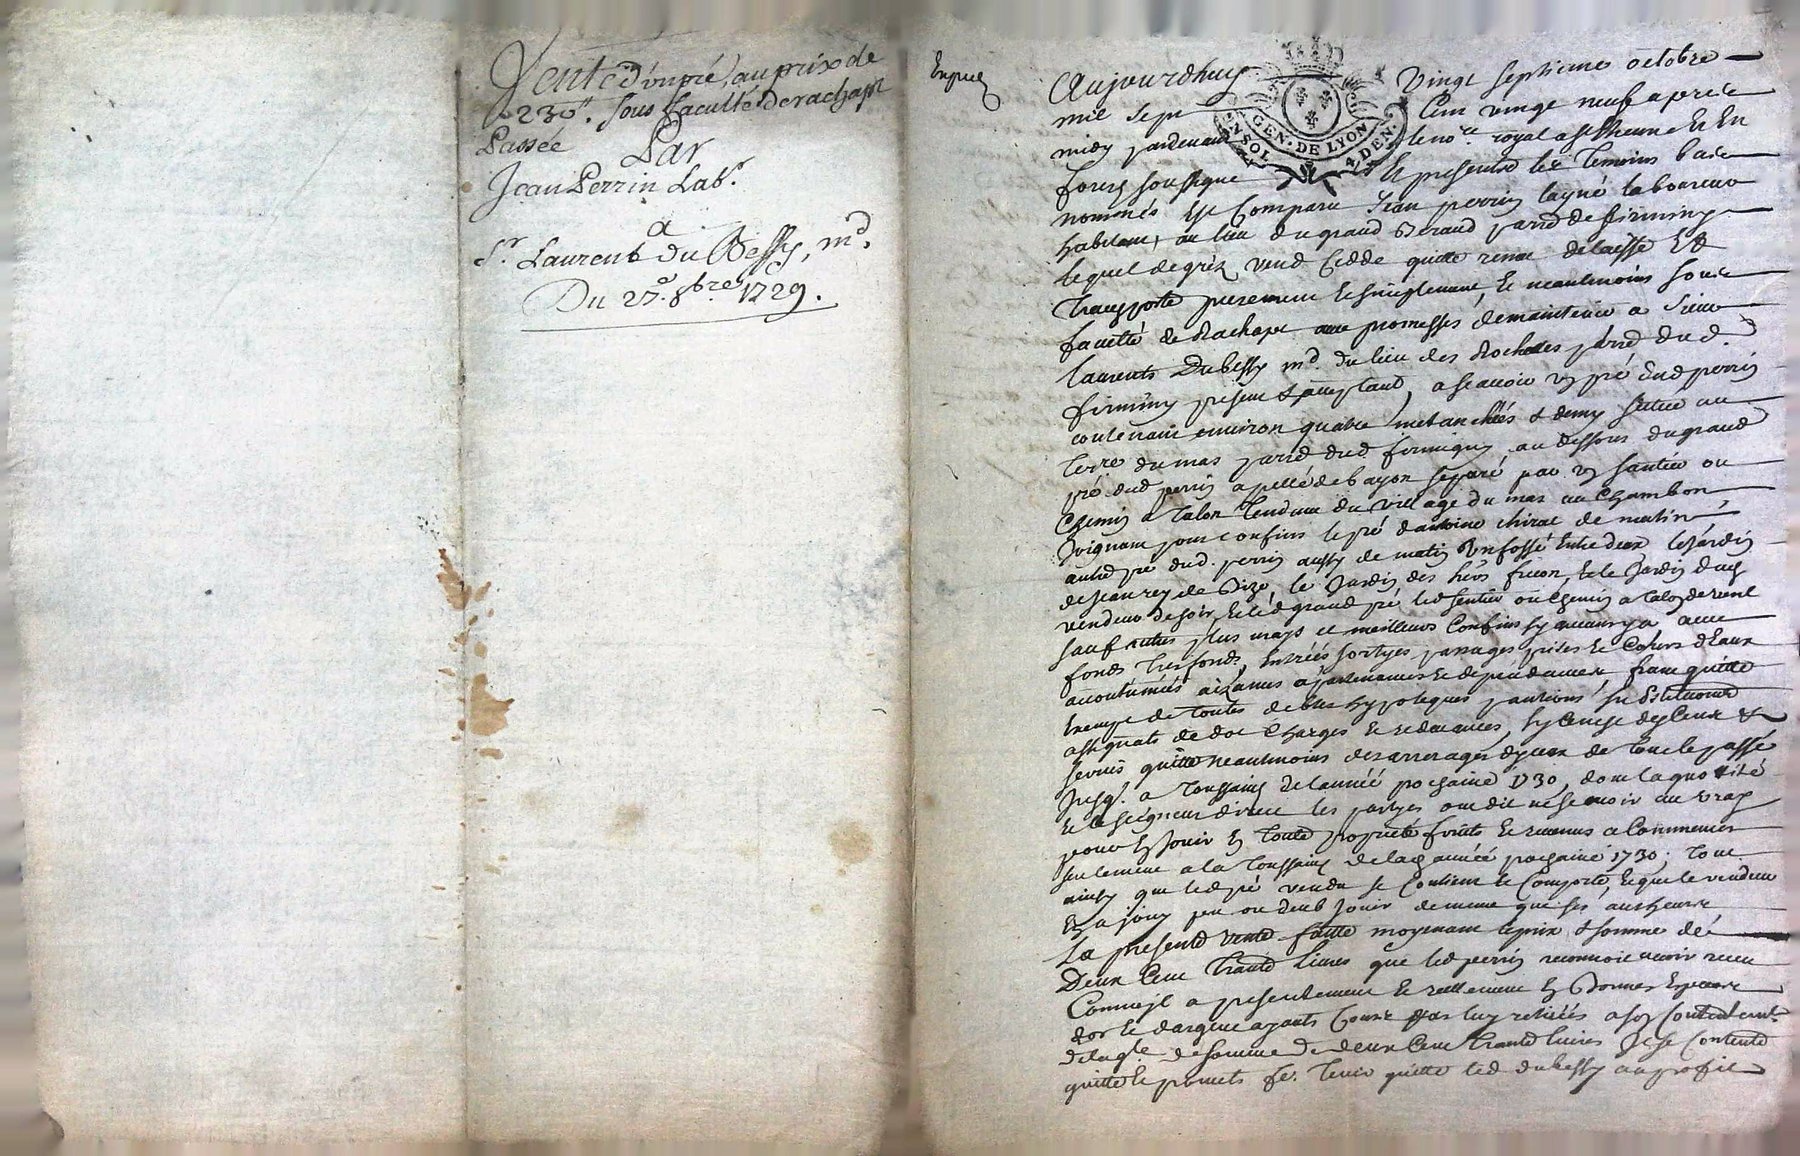 Vente d'un pré, au prix de
230 tt. sous faculté de rachapt
Passée
Par
Jean Perrin Labr.
a
Sr. Laurent du Bessy, md.
Du 27e. 8bre. 1729.
Aujourdhuy vingt septieme octobre
mil sept cent vingt neuf apres
midy pardevant le nore royal a st Etienne en
GEN. DE LYON
UN SOL 4 DEN.
forez soussigne et presents les temoins bas
nommés est comparu Jean perrin layné laboureur
habitant au lieu du grand Beraud parre de firminy
lequel de gré vend cedde quitte remet delaisse et
transporte purement et simplement, et neantmoins sous
faculté de Rachapt avec promesses de maintenir a sieur
laurents Dubessy md. du lieu des Rochettes parre dud.
firminy present et acceptant, a scavoir un pré dud perrin
contenant environ quatre metanchées & demy situé au
terre du mas parre dud firminy au dessous du grand
pré dud perrin apellé de bayon separé par un santier ou
chemin a talon tendant du village du mas au Chambon,
joignant pour confins le pré dantoine chirac de matin,
autre pré dud. perrin aussy de matin un fossé entre deux le jardin
de Jean rey de bize, le Jardin des hers freon, et le Jardin dud
vendeur de soir, et led grand pré led sentier ou chemin a talon de vent
sauf autres plus vrays et meilleurs confins sy aucuns y a avec
fonds tresfonds, entrées sortyes passages prises et cours deaux
accoutumés aizances apartenances et dependances franc quitte
exempt de toutes debtes hypoteques pantions substitutions
assignats de dot charges et redevances, sy cense dyceux et
servis quitte neantmoins des arrerages dyceux de tout le passé
jusqs. a toussaints de lannée prochaine 1730, dont la quotité
et le seigneur direct les partyes ont dit ne scavoir au vray
pour en jouir en toute proprieté fruits et revenus a commencer
seulement a la toussaints de lad année prochaine 1730; tout
ainsy que led pré vendu se contient et comporte, et que le vendeur
en a jouy peu ou deub jouir de meme que ses autheurs
La presente vente faitte moyenant le prix & somme de
Deux cent trante livres que led perrin reconnoit avoir receu
Comme il a presentement et reellement en bonnes especes
dor et dargent ayants cours par luy retirées a son contentemt.
de laqle. de somme de deux cent trante livres il se contente
quitte et promets fe. tenir quitte led dubessy au profit